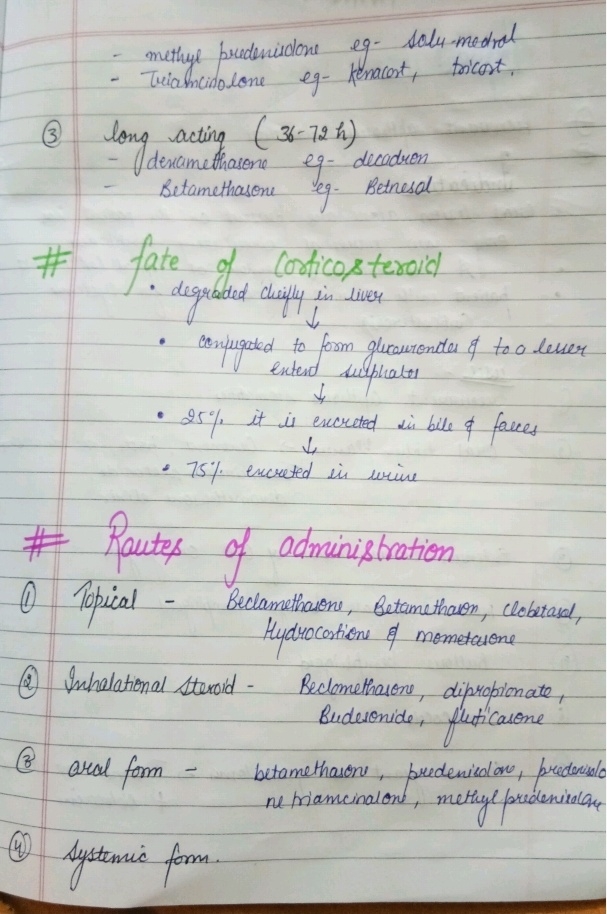 - methyl predenisolone eg- Solu-medrol
- Triamcinolone eg- kenacort, tricort.
③ long acting ( 36-72 h)
- dexamethasone eg- decadron
- Betamethasone eg- Betnesol
# fate of Corticosteroid
• degraded cheifly in liver
↓
• conjugated to form glucauronides & to a lesser
extend sulphates
↓
• 25% it is excreted in bile & faeces
↓
• 75% excreted in urine
# Routes of administration
① Topical - Beclamethasone, Betamethason, clobetasol,
Hydrocortione & mometasone
② Inhalational steroid - Beclomethasone, dipropionate,
Budesonide, fluticasone
③ oral form - betamethasone, predenisolone, predenisolo
ne triamcinalone, methyl predenisolone
④ systemic form.